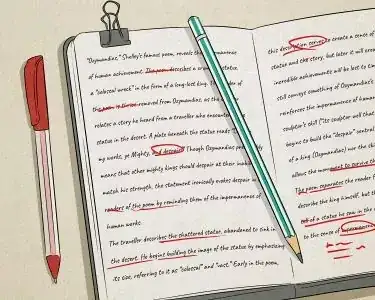 "Ozymandias," Shelley's famous poem, reveals the impermanence
of human achievement. The poem describes a grand statue,
a "colossal wreck" in the form of a long-lost king. The reader of
the poem is thrice removed from Ozymandias, as the
relates a story he heard from a traveller who encountered
status in the desert. A plate beneath the status reads
my works, ye Mighty, and despair! Though Ozymandias
means that other mighty kings should despair at their
match his strength, the statement ironically evokes despair
readers of the poem by reminding them of the impermanence of
human works.
The traveller describes the shattered statue, abandoned to sink in
the desert. He begins building the image of the statue by emphasizing
its size, referring to it as "colossal" and "vast." Early in the poem,
this description serves to create a sense of
statue and the story, but later it will
incredible achievements will be lost to
still conveys something of Ozymandias's
reinforces the impermanence of human
sculptor's skill ("its sculptor well those
begins to build the "despair" central
of a king (Ozymandias) nor the
allows the to survive
The poem separates the reader
describe the king himself, but
tell of a status he saw in the
to the sense of impermanence